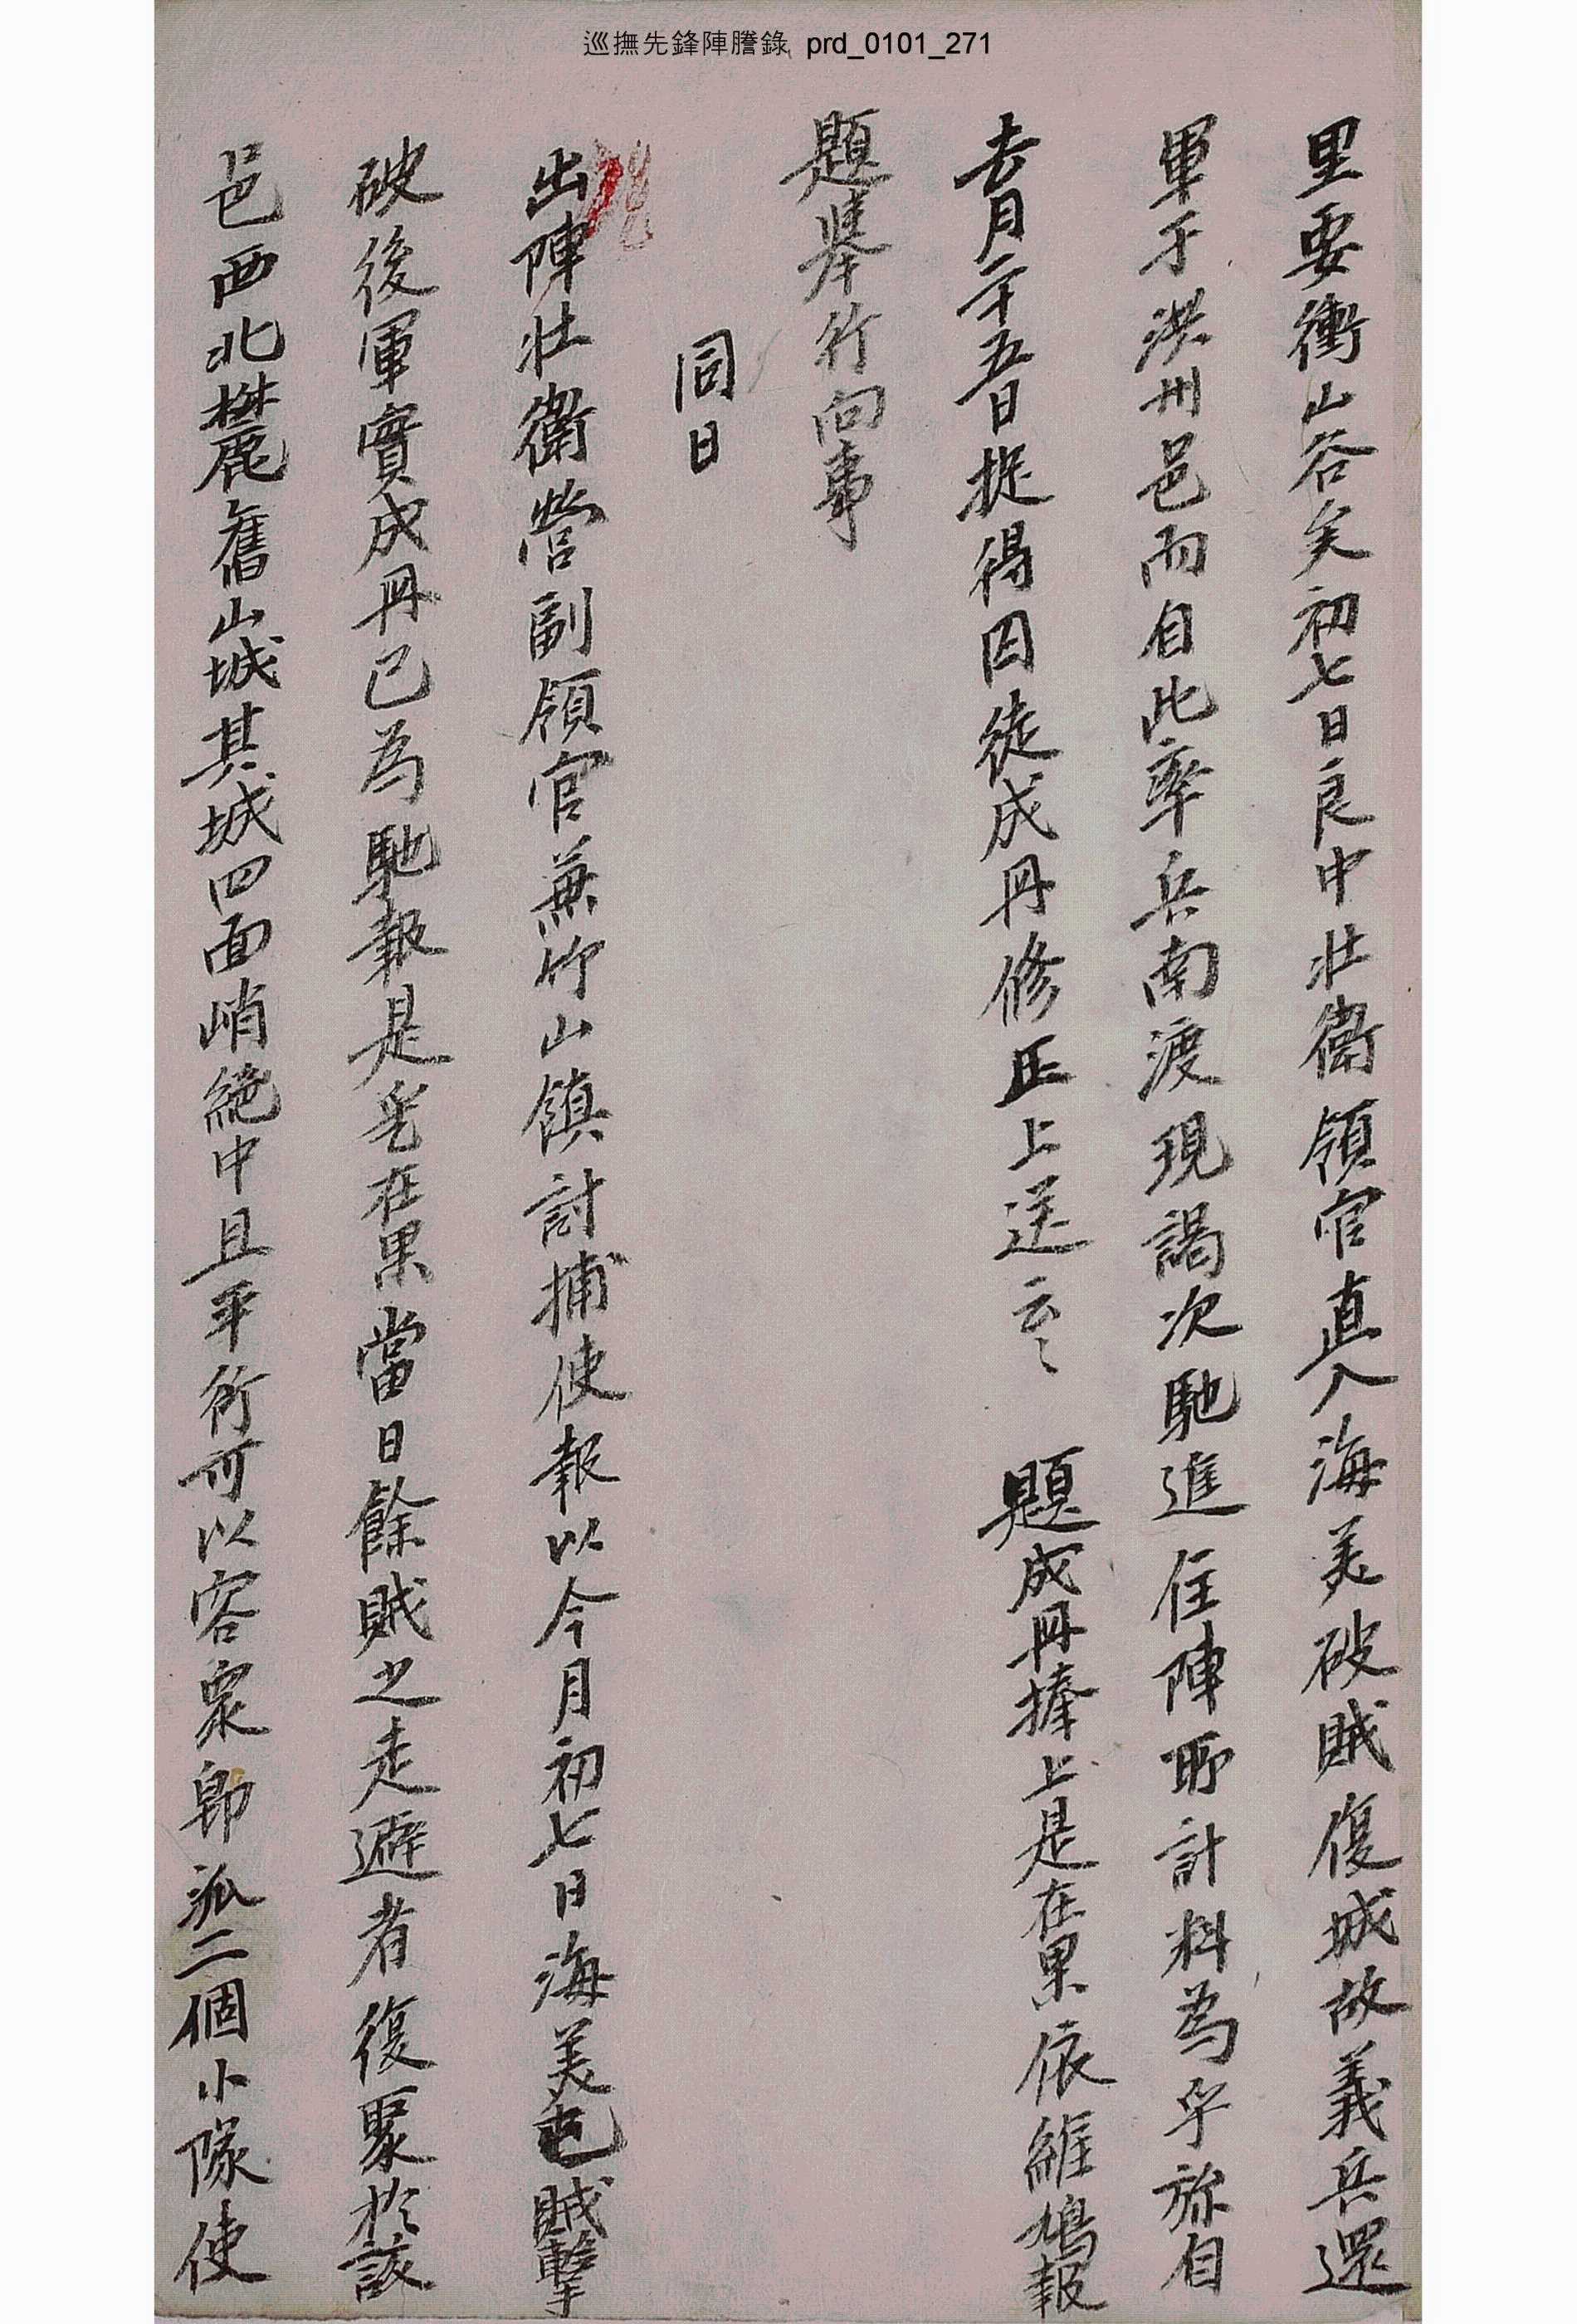 巡撫先鋒陣謄錄 prd_0101_271
里要衝山谷矣初七日良中壯衛領官直入海美破賊復城故義兵還
軍于洪州邑而自此率兵南渡現謁次馳進住陣耶計料爲乎旀自
去月二十五日捉得囚徒成冊修正上送云云 題成冊捧上是在果依維鳩報
題擧行向事
同日
出陣壯衛營副領官兼竹山鎭討捕使報以今月初七日海美屯賊擊
破後軍實成冊已爲馳報是乎在果當日餘賊之走避者復聚於該
邑西北麓舊山城其城四面峭絶中且平衍可以容衆卽派二個小隊使